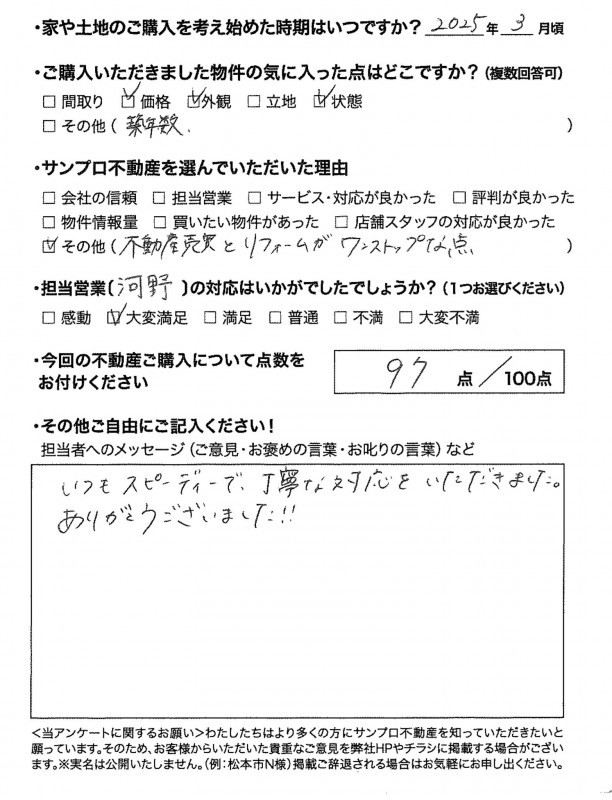 ・家や土地のご購入を考え始めた時期はいつですか? 2025年 3月頃
・ご購入いただきました物件の気に入った点はどこですか?(複数回答可)
□ 間取り ☑ 価格 ☑ 外観 □ 立地 ☑ 状態
□ その他( 築年数. )
・サンプロ不動産を選んでいただいた理由
□ 会社の信頼 □ 担当営業 □ サービス・対応が良かった □ 評判が良かった
□ 物件情報量 □ 買いたい物件があった □ 店舗スタッフの対応が良かった
☑ その他( 不動産売買とリフォームがワンストップな点 )
・担当営業〔 河野 〕の対応はいかがでしたでしょうか?(1つお選びください)
□ 感動 ☑ 大変満足 □ 満足 □ 普通 □ 不満 □ 大変不満
・今回の不動産ご購入について点数を
お付けください
97 点/100点
・その他ご自由にご記入ください!
担当者へのメッセージ(ご意見・お褒めの言葉・お叱りの言葉)など
いつもスピーディーで、丁寧な対応をいただきました。
ありがとうございました!!
<当アンケートに関するお願い>わたしたちはより多くの方にサンプロ不動産を知っていただきたいと
願っています。そのため、お客様からいただいた貴重なご意見を弊社HPやチラシに掲載する場合がござい
ます。※実名は公開いたしません。(例:松本市N様)掲載ご辞退される場合はお気軽にお申し出ください。